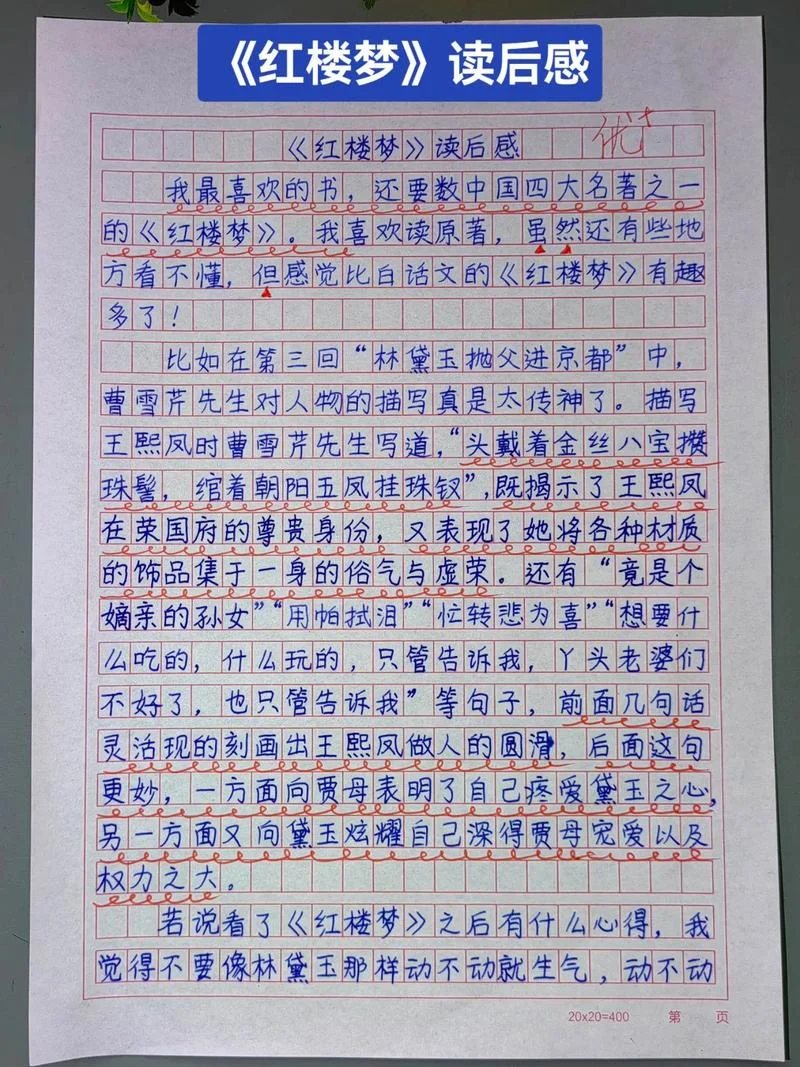 《红楼梦》读后感
《红楼梦》读后感 优+
我最喜欢的书，还要数中国四大名著之一
的《红楼梦》。我喜欢读原著，虽然还有些地
方看不懂，但感觉比白话文的《红楼梦》有趣
多了！
比如在第三回“林黛玉抛父进京都”中，
曹雪芹先生对人物的描写真是太传神了。描写
王熙凤时曹雪芹先生写道，“头戴着金丝八宝攒
珠髻，绾着朝阳五凤挂珠钗”，既揭示了王熙凤
在荣国府的尊贵身份，又表现了她将各种材质
的饰品集于一身的俗气与虚荣。还有“竟是个
嫡亲的孙女”“用帕拭泪”“忙转悲为喜”“想要什
么吃的，什么玩的，只管告诉我，丫头老婆们
不好了，也只管告诉我”等句子，前面几句话
灵活现的刻画出王熙凤做人的圆滑，后面这句
更妙，一方面向贾母表明了自己疼爱黛玉之心，
另一方面又向黛玉炫耀自己深得贾母宠爱以及
权力之大。
若说看了《红楼梦》之后有什么心得，我
觉得不要像林黛玉那样动不动就生气，动不动
20x20=400 第 页